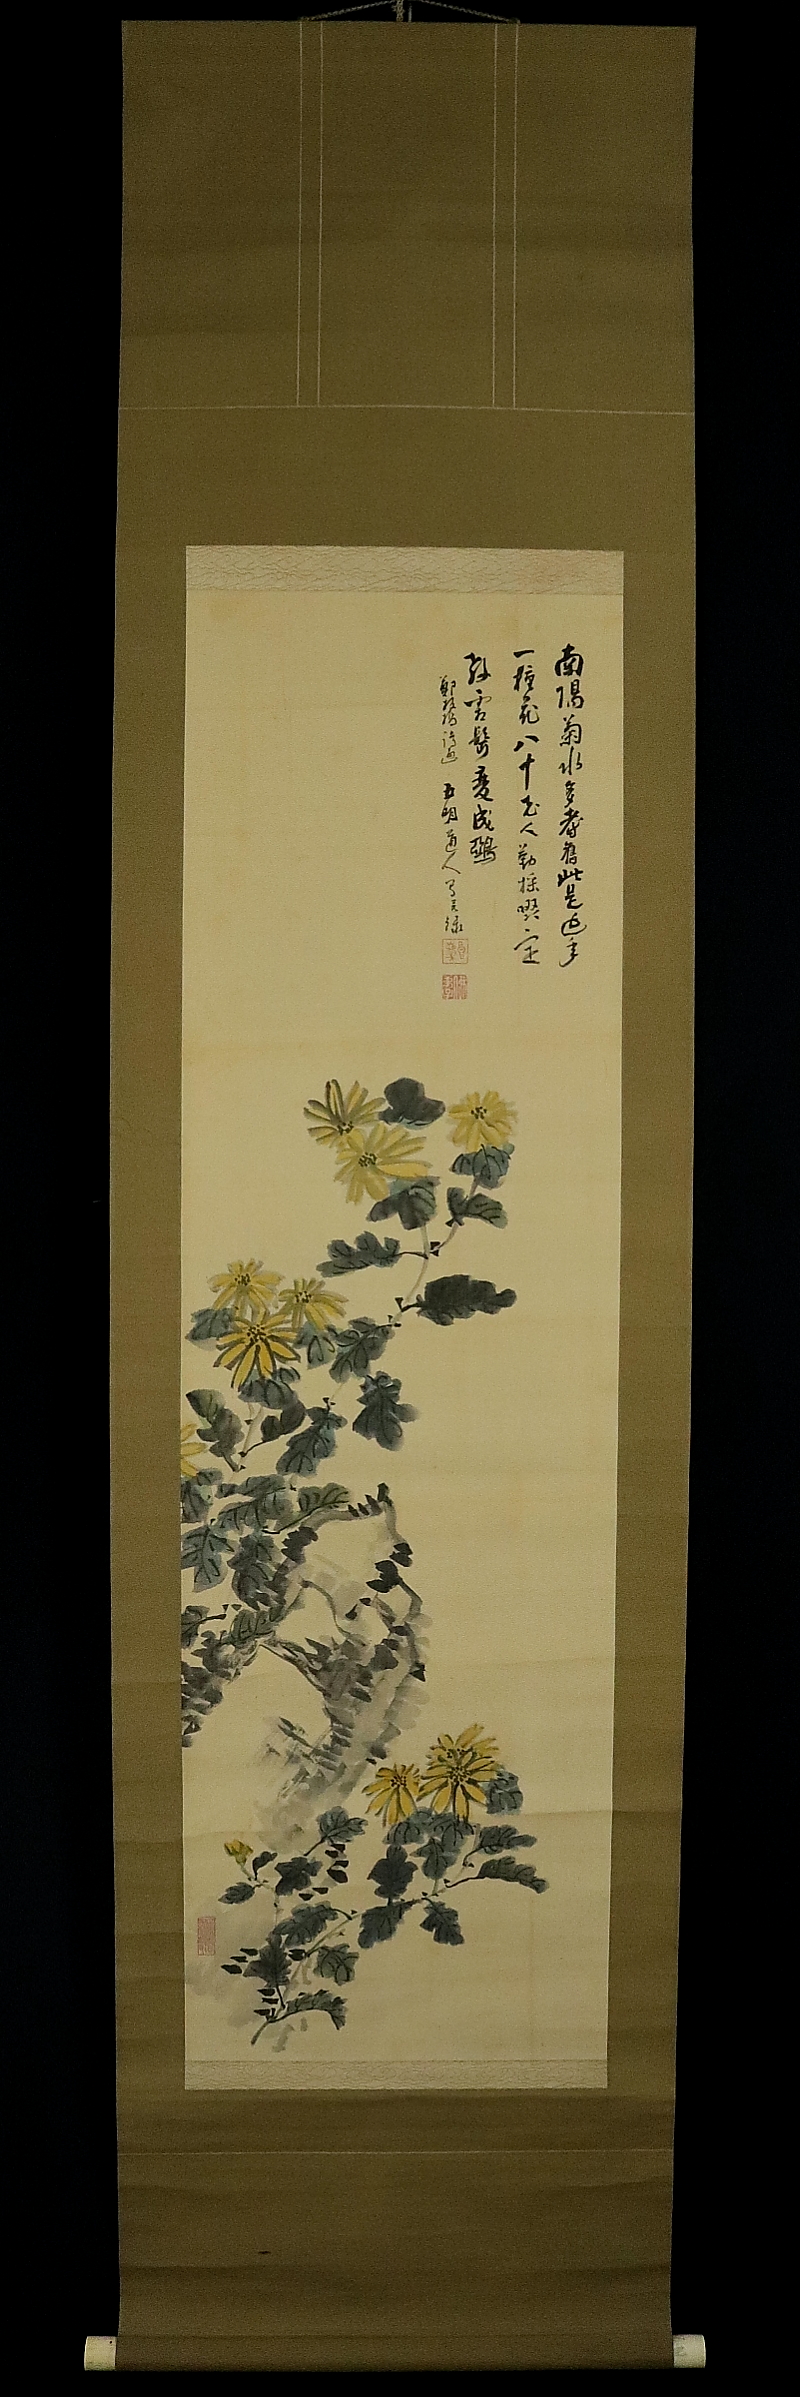 南陽菊水多耆舊此是延年
一種花八十老人勤採啜定
教雲鬢變成鴉
鄭板橋詩 五明道人